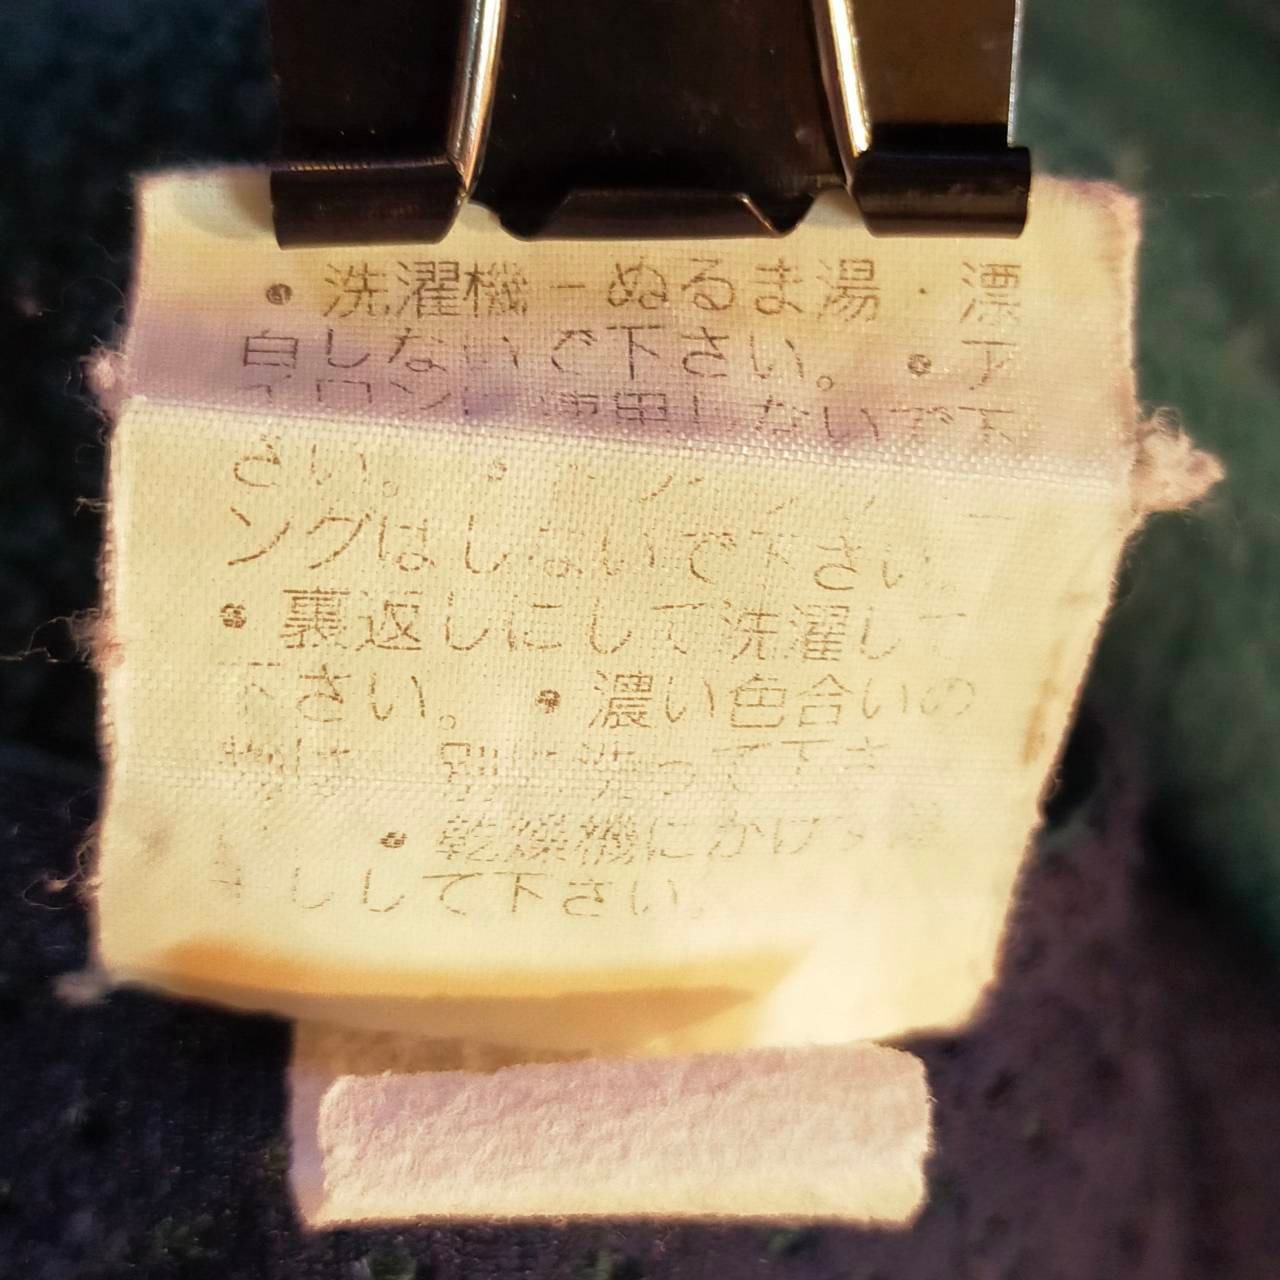 • 洗濯機-ぬるま湯・漂
白しないで下さい。 • ア
イロンは使用しないで下
さい。 •
ングはしないで下さい。
• 裏返しにして洗濯して
下さい。 • 濃い色合いの
物は 別に洗って下さ
• 乾燥機にかけ
干しして下さい。